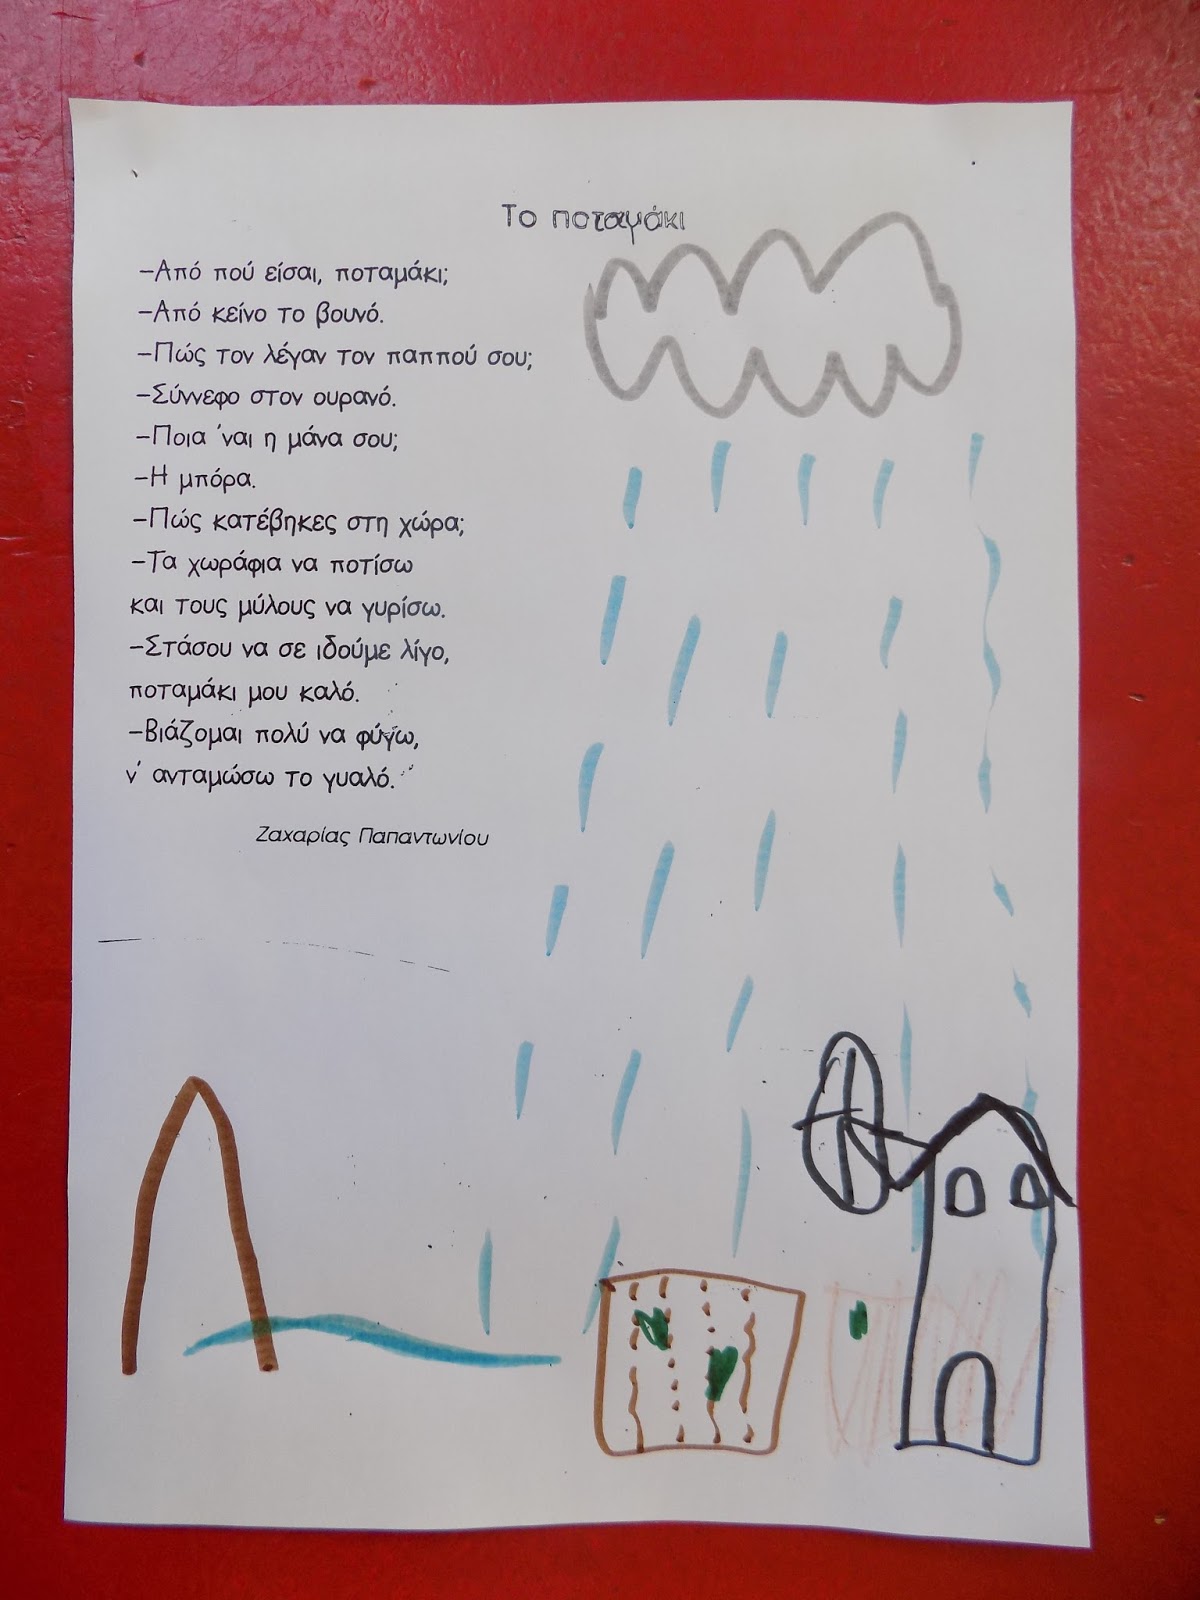 Το ποταμάκι
-Από πού είσαι, ποταμάκι;
-Από κείνο το βουνό.
-Πώς τον λέγαν τον παππού σου;
-Σύννεφο στον ουρανό.
-Ποια 'ναι η μάνα σου;
-Η μπόρα.
-Πώς κατέβηκες στη χώρα;
-Τα χωράφια να ποτίσω
και τους μύλους να γυρίσω.
-Στάσου να σε ιδούμε λίγο,
ποταμάκι μου καλό.
-Βιάζομαι πολύ να φύγω,
ν' ανταμώσω το γυαλό.
Ζαχαρίας Παπαντωνίου